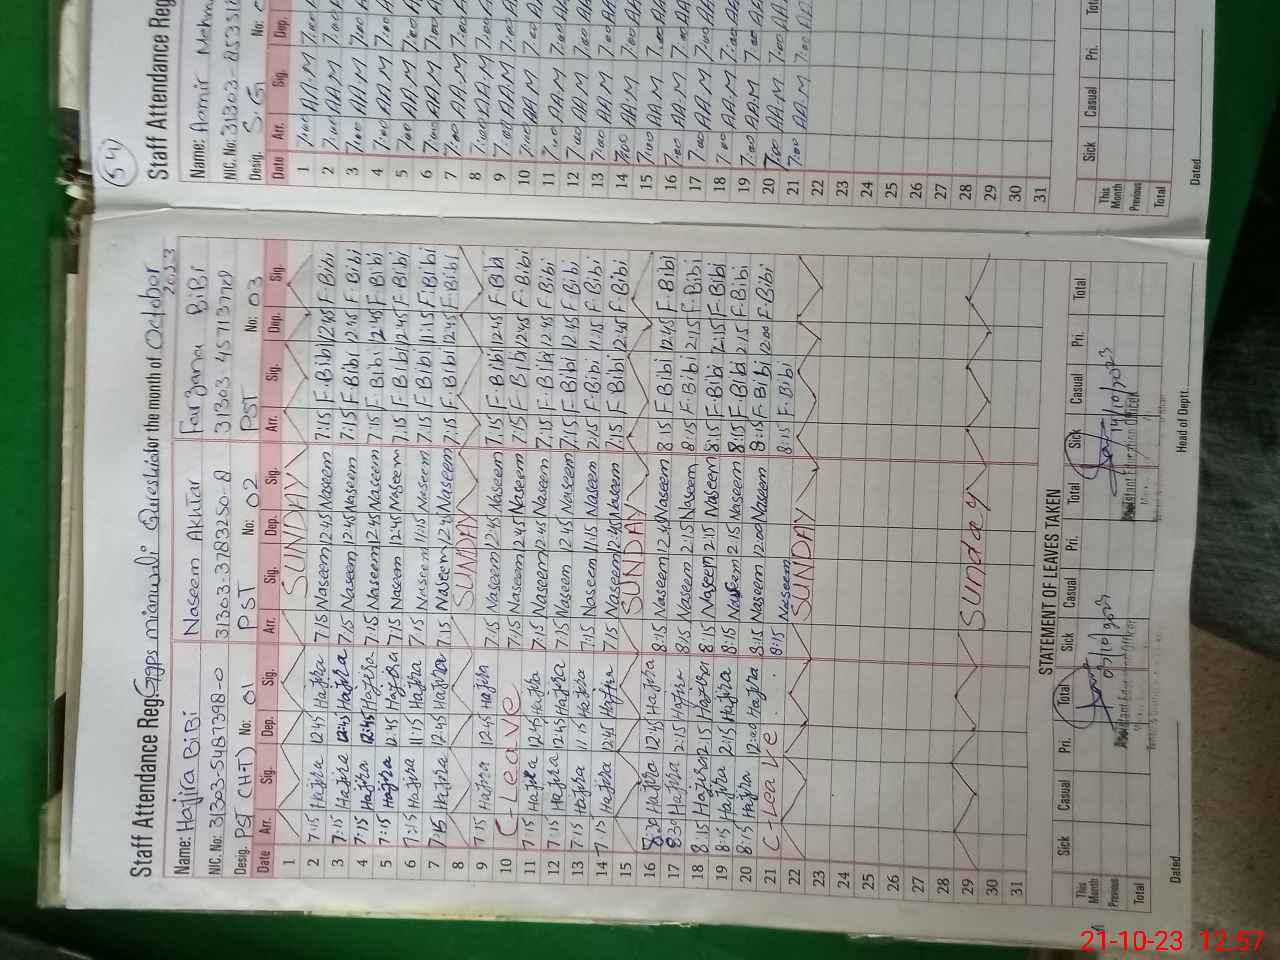 Staff Attendance Reg Ggps mianwali Qureshi for the month of October 2023
Name: Hajira BiBi Naseem Akhtar Farzana BiBi
NIC. No: 31303-5487398-0 31303-3783250-8
Desig. PST (H-T) No: 01 PST No: 02 PST No: 03
Date Arr. Sig. Dep. Sig. Arr. Sig. Dep. Sig. Arr. Sig. Dep. Sig.
1 SUNDAY
2 7:15 Hajira 12:45 Hajira 7:15 Naseem 12:45 Naseem 7:15 F.Bibi 12:45 F.Bibi
3 7:15 Hajira 12:45 Hajira 7:15 Naseem 12:45 Naseem 7:15 F.Bibi 12:45 F.Bibi
4 7:15 Hajira 12:45 Hajira 7:15 Naseem 12:45 Naseem 7:15 F.Bibi 12:45 F.Bibi
5 7:15 Hajira 12:45 Hajira 7:15 Naseem 12:45 Naseem 7:15 F.Bibi 12:45 F.Bibi
6 7:15 Hajira 11:15 Hajira 7:15 Naseem 11:15 Naseem 7:15 F.Bibi 11:15 F.Bibi
7 7:15 Hajira 12:45 Hajira 7:15 Naseem 12:45 Naseem 7:15 F.Bibi 12:45 F.Bibi
8 SUNDAY
9 7:15 Hajira 12:45 Hajira 7:15 Naseem 12:45 Naseem 7:15 F.Bibi 12:45 F.Bibi
10 C-Leave 7:15 Naseem 12:45 Naseem 7:15 F.Bibi 12:45 F.Bibi
11 7:15 Hajira 12:45 Hajira 7:15 Naseem 12:45 Naseem 7:15 F.Bibi 12:45 F.Bibi
12 7:15 Hajira 12:45 Hajira 7:15 Naseem 12:45 Naseem 7:15 F.Bibi 12:45 F.Bibi
13 7:15 Hajira 11:15 Hajira 7:15 Naseem 11:15 Naseem 7:15 F.Bibi 11:15 F.Bibi
14 7:15 Hajira 12:45 Hajira 7:15 Naseem 12:45 Naseem 7:15 F.Bibi 12:45 F.Bibi
15 SUNDAY
16 8:30 Hajira 12:45 Hajira 8:15 Naseem 12:45 Naseem 8:15 F.Bibi 12:45 F.Bibi
17 8:30 Hajira 2:15 Hajira 8:15 Naseem 2:15 Naseem 8:15 F.Bibi 2:15 F.Bibi
18 8:15 Hajira 2:15 Hajira 8:15 Naseem 2:15 Naseem 8:15 F.Bibi 2:15 F.Bibi
19 8:15 Hajira 2:15 Hajira 8:15 Naseem 2:15 Naseem 8:15 F.Bibi 2:15 F.Bibi
20 8:15 Hajira 12:00 Hajira 8:15 Naseem 12:00 Naseem 8:15 F.Bibi 12:00 F.Bibi
21 C-Leave 8:15 Naseem 8:15 F.Bibi
22 SUNDAY
23
24
25
26
27
28
29 Sunday
30
31
STATEMENT OF LEAVES TAKEN
Sick Casual Pri. Total Sick Casual Pri. Total Sick Casual Pri. Total
This Month
Previous
Total
Dated Head of Deptt.
54
Staff Attendance Reg
Name: Aamir
NIC. No: 31303-
Desig. S.G No:
Date Arr. Sig. Dep.
1 7:00 AA.M 7:00
2 7:00 AA.M 7:00
3 7:00 AA.M 7:00
4 7:00 AA.M 7:00
5 7:00 AA.M 7:00
6 7:00 AA.M 7:00
7 7:00 AA.M 7:00
8 7:00 AA.M 7:00
9 7:00 AA.M 7:00
10 7:00 AA.M 7:00
11 7:00 AA.M 7:00
12 7:00 AA.M 7:00
13 7:00 AA.M 7:00
14 7:00 AA.M 7:00
15 7:00 AA.M 7:00
16 7:00 AA.M 7:00
17 7:00 AA.M 7:00
18 7:00 AA.M 7:00
19 7:00 AA.M 7:00
20 7:00 AA.M 7:00
21 7:00 AA.M
22
23
24
25
26
27
28
29
30
31
Sick Casual Pri.
This Month
Previous
Total
Dated
21-10-23 12:57